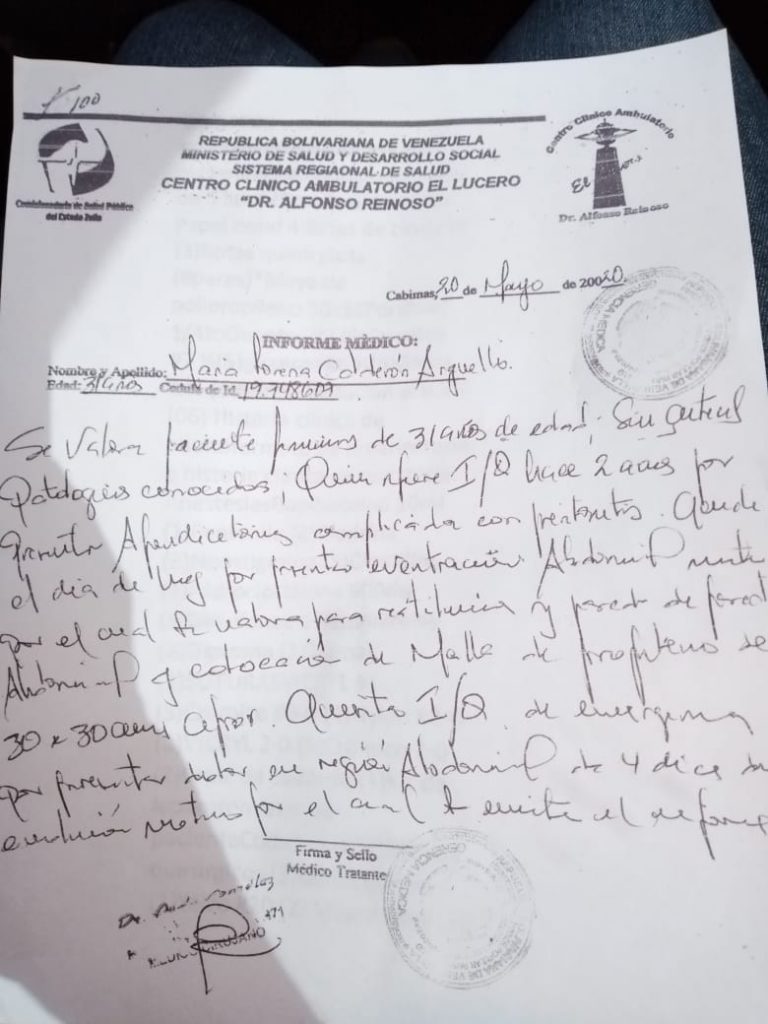 100
REPUBLICA BOLIVARIANA DE VENEZUELA
MINISTERIO DE SALUD Y DESARROLLO SOCIAL
SISTEMA REGIAONAL DE SALUD
CENTRO CLINICO AMBULATORIO EL LUCERO
"DR. ALFONSO REINOSO"
Comisionaduría de Salud Pública
del Estado Zulia
Centro Clínico Ambulatorio
El
Dr. Alfonso Reinoso
Cabimas, 20 de Mayo de 20020
INFORME MÈDICO:
Nombre y Apellido: Maria Lorena Calderón Arguello.
Edad: 31 años Cedula de Id. 19.748609
Se Valora paciente de 31 años de edad, Sin
Patologías conocidas, Quien refiere I/Q hace 2 por
Apendicetomia complicada con peritonitis. Acude
el dia de hoy por presentar eventración Abdominal
por el cual se valora para restitución y pared de pared
Abdominal y colocación de Malla de propileno de
30 x 30 cms I/Q de emergencia
por presentar dolor en región Abdominal de 4 dias de
evolución motivo por el cual se emite el informe
Firma y Sello
Médico Tratante
Dr.
CIRUJANO
GERENCIA MEDICA